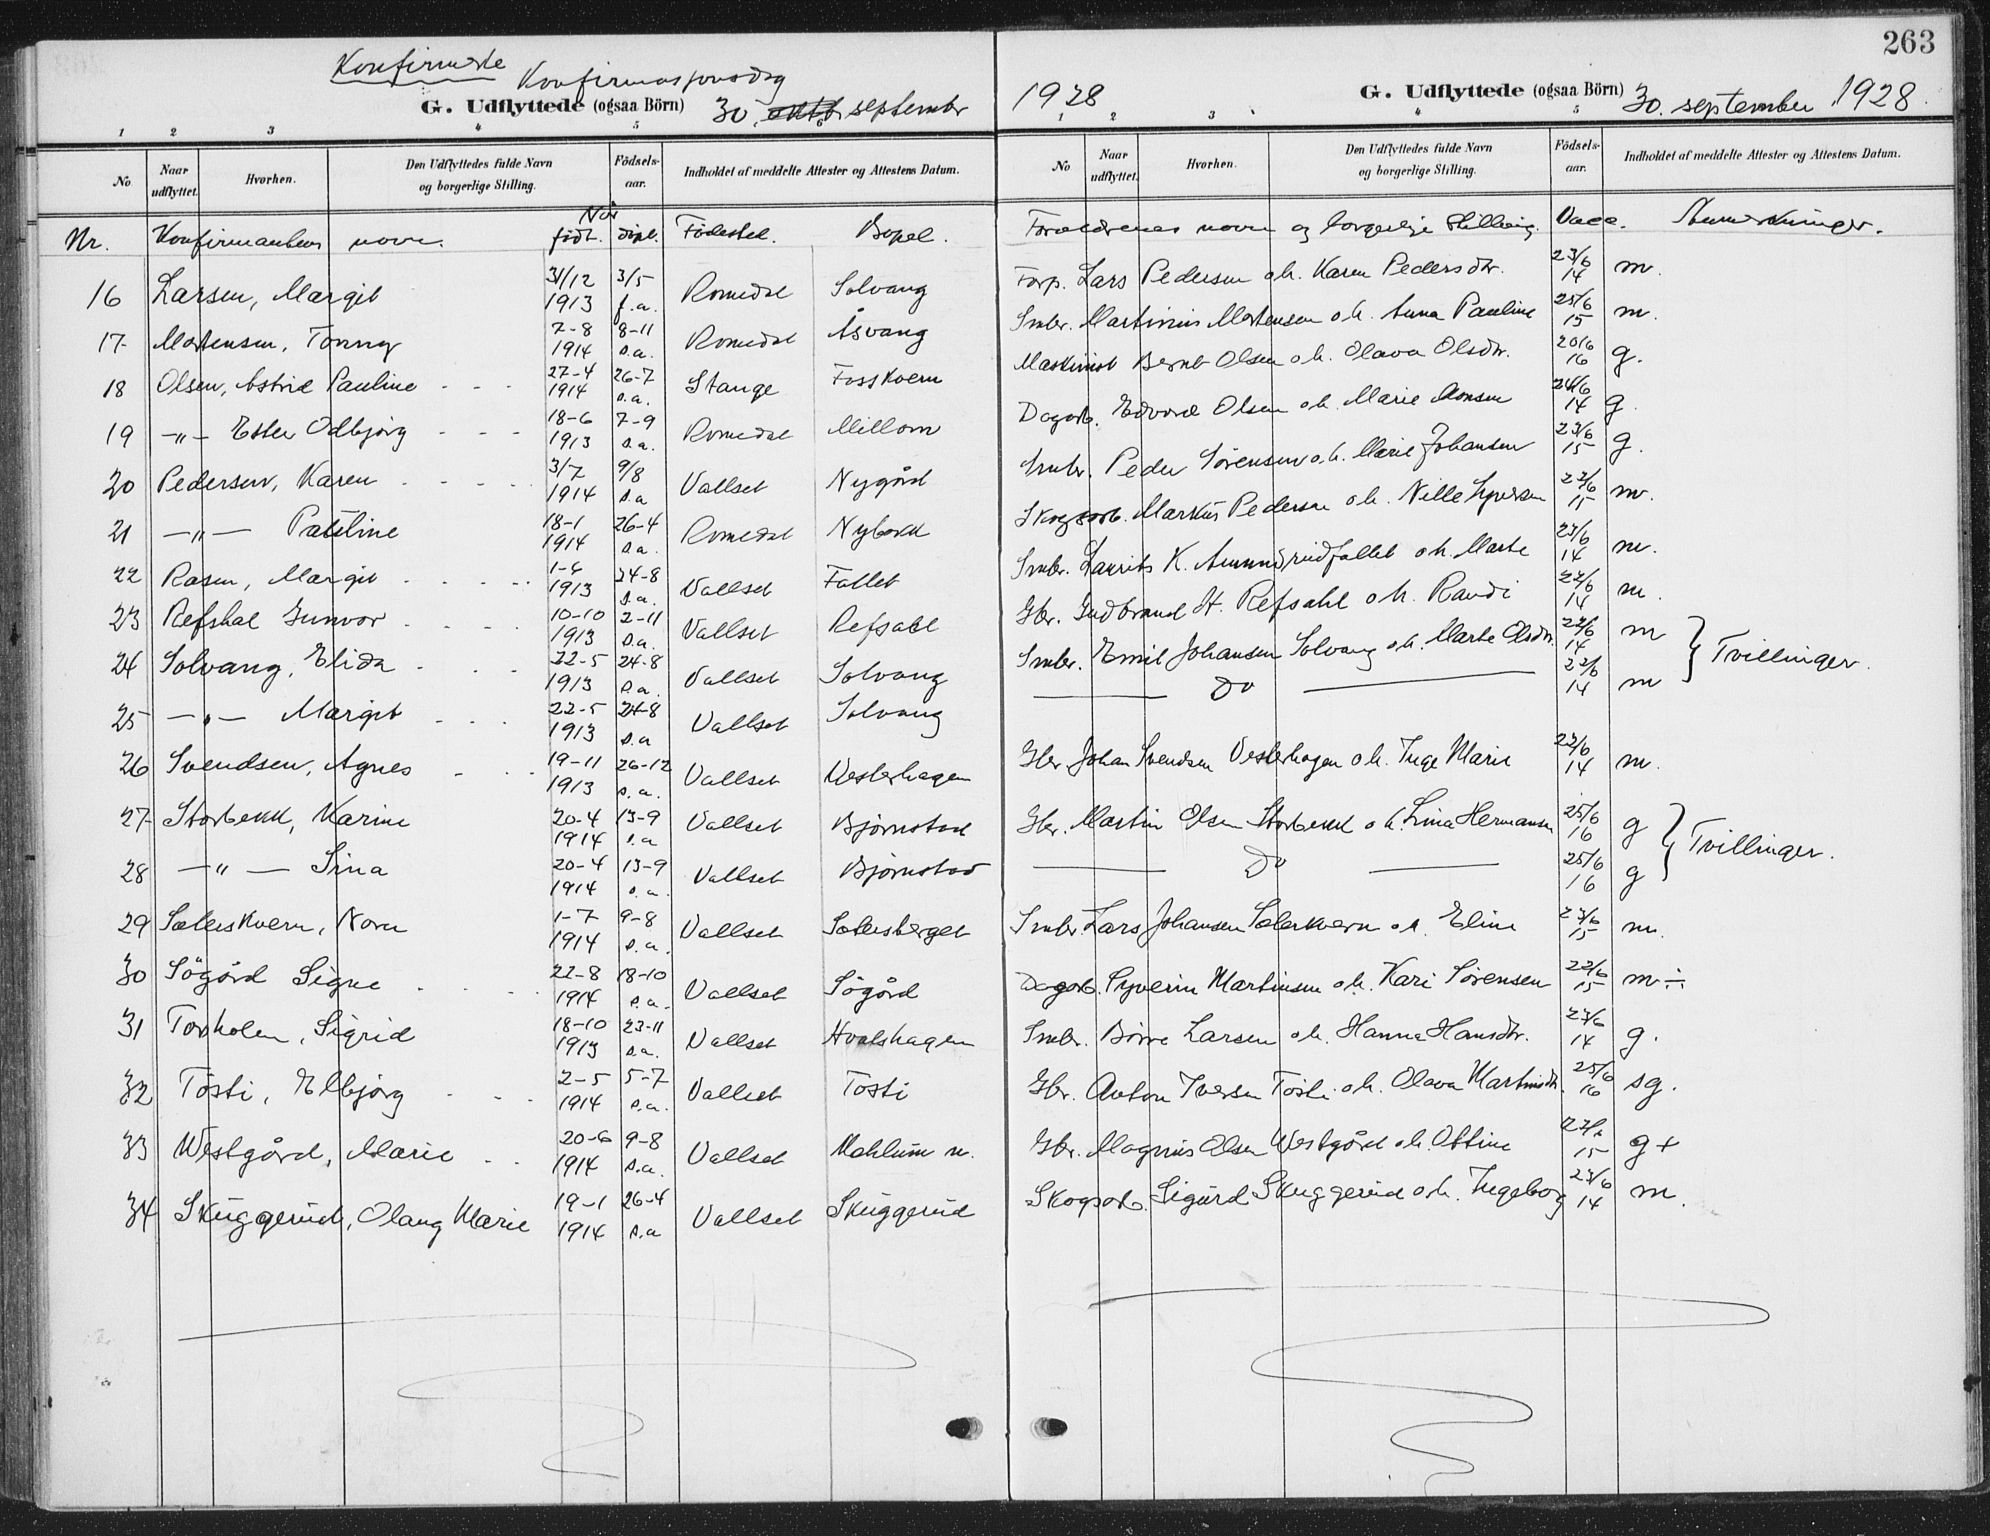 263
Konfirmerte
Konfirmasjonsdag
G. Udflyttede (ogsaa Börn) 30. september 1928
G. Udflyttede (ogsaa Börn) 30. september 1928.
1 2 3 4 5 6
1 2 3 4 5
No Naar udflyttet. Hvorhen. Den Udflyttedes fulde Navn og borgerlige Stilling. Födsels-aar. Indholdet af meddelte Attester og Attestens Datum.
No Naar udflyttet. Hvorhen. Den Udflyttedes fulde Navn og borgerlige Stilling. Födsels-aar. Indholdet af meddelte Attester og Attestens Datum.
Nr. Konfirmantens navn. Når født. døpt. Födested. Bopel. Foreldrenes navn og borgerlige stilling. Vacc. Anmerkninger.
16 Larsen, Margit 31/12 1913 3/5 f.a. Romedal Solvang Forp. Lars Pedersen o.h. Karen Pedersdtr. 23/6 14 m.
17 Mortensen, Tonny 7-8 1914 8-11 s.a. Romedal Åsvang Smbr. Martinius Mortensen o.h. Anna Pauline 25/6 15 m.
18 Olsen, Astrid Pauline 27-4 1914 26-7 s.a. Stange Fosskvern Maskinist Bernt Olsen o.h. Olava Olsdtr. 20/6 16 g.
19 -"- Ester Odbjørg 18-6 1913 7-9 s.a. Romedal Millom Dagarb. Edvard Olsen o.h. Marie Monsen 24/6 14 g.
20 Pedersen, Karen 3/7 1914 9/8 s.a. Vallset Nygård Smbr. Peder Sørensen o.h. Marie Johansen 23/6 15 g.
21 -"- Pauline 18-1 1914 26-4 s.a. Romedal Nybakk Skogsarb. Markus Pedersen o.h. Nille Syversen 22/6 15 m.
22 Rasen, Margit 1-6 1913 24-8 s.a. Vallset Fallet Smbr. Laurits K. Amundrudfallet o.h. Marte 23/6 14 m.
23 Refshal Gunvor 10-10 1913 2-11 s.a. Vallset Refsahl Gbr. Gudbrand H. Refsahl o.h. Randi 22/6 14 m.
24 Solvang, Elida 22-5 1913 24-8 s.a. Vallset Solvang Smbr. Emil Johansen Solvang o.h. Marte Olsdtr. 22/6 14 m } Tvillinger.
25 -"- Margit 22-5 1913 24-8 s.a Vallset Solvang Do 22/6 14 m
26 Svendsen, Agnes 19-11 1913 26-12 s.a. Vallset Vesterhagen Gbr. Johan Svendsen Vesterhagen o.h. Inge Marie 23/6 14 m.
27 Storbekk, Karine 20-4 1914 13-9 s.a Vallset Bjørnstad Gbr. Martin Olsen Storbekk o.h. Lina Hermansen 25/6 16 g } Tvillinger.
28 -"- Sina 20-4 1914 13-9 s.a. Vallset Bjørnstad Do 25/6 16 g
29 Sæterskvern, Nora 1-7 1914 9-8 s.a. Vallset Sætersberget Smbr. Lars Johansen Sæterkvern o.h. Eline 23/6 15 m.
30 Sögård Signe 22-8 1914 18-10 s.a. Vallset Sögård Dagarb. Syverin Martinsen o.h. Kari Sørensen 22/6 15 m ÷
31 Torholen, Sigrid 18-10 1913 23-11 s.a. Vallset Hvalshagen Smbr. Børre Larsen o.h. Hanna Hansdtr. 23/6 14 g.
32 Tosti, Elbjørg 2-5 1914 5-7 s.a. Vallset Tosti Gbr. Anton Iversen Tosti o.h. Olava Martinsdtr. 25/6 16 sg.
33 Westgård, Marie 20-6 1914 9-8 s.a. Vallset Mahlum n. Gbr. Magnus Olsen Westgård o.h. Ottine 15 g+
34 Skuggerud, Olaug Marie 19-1 1914 26-4 s.a Vallset Skuggerud Skogsarb. Sigurd Skuggerud o.h. Ingeborg 23/6 14 m.